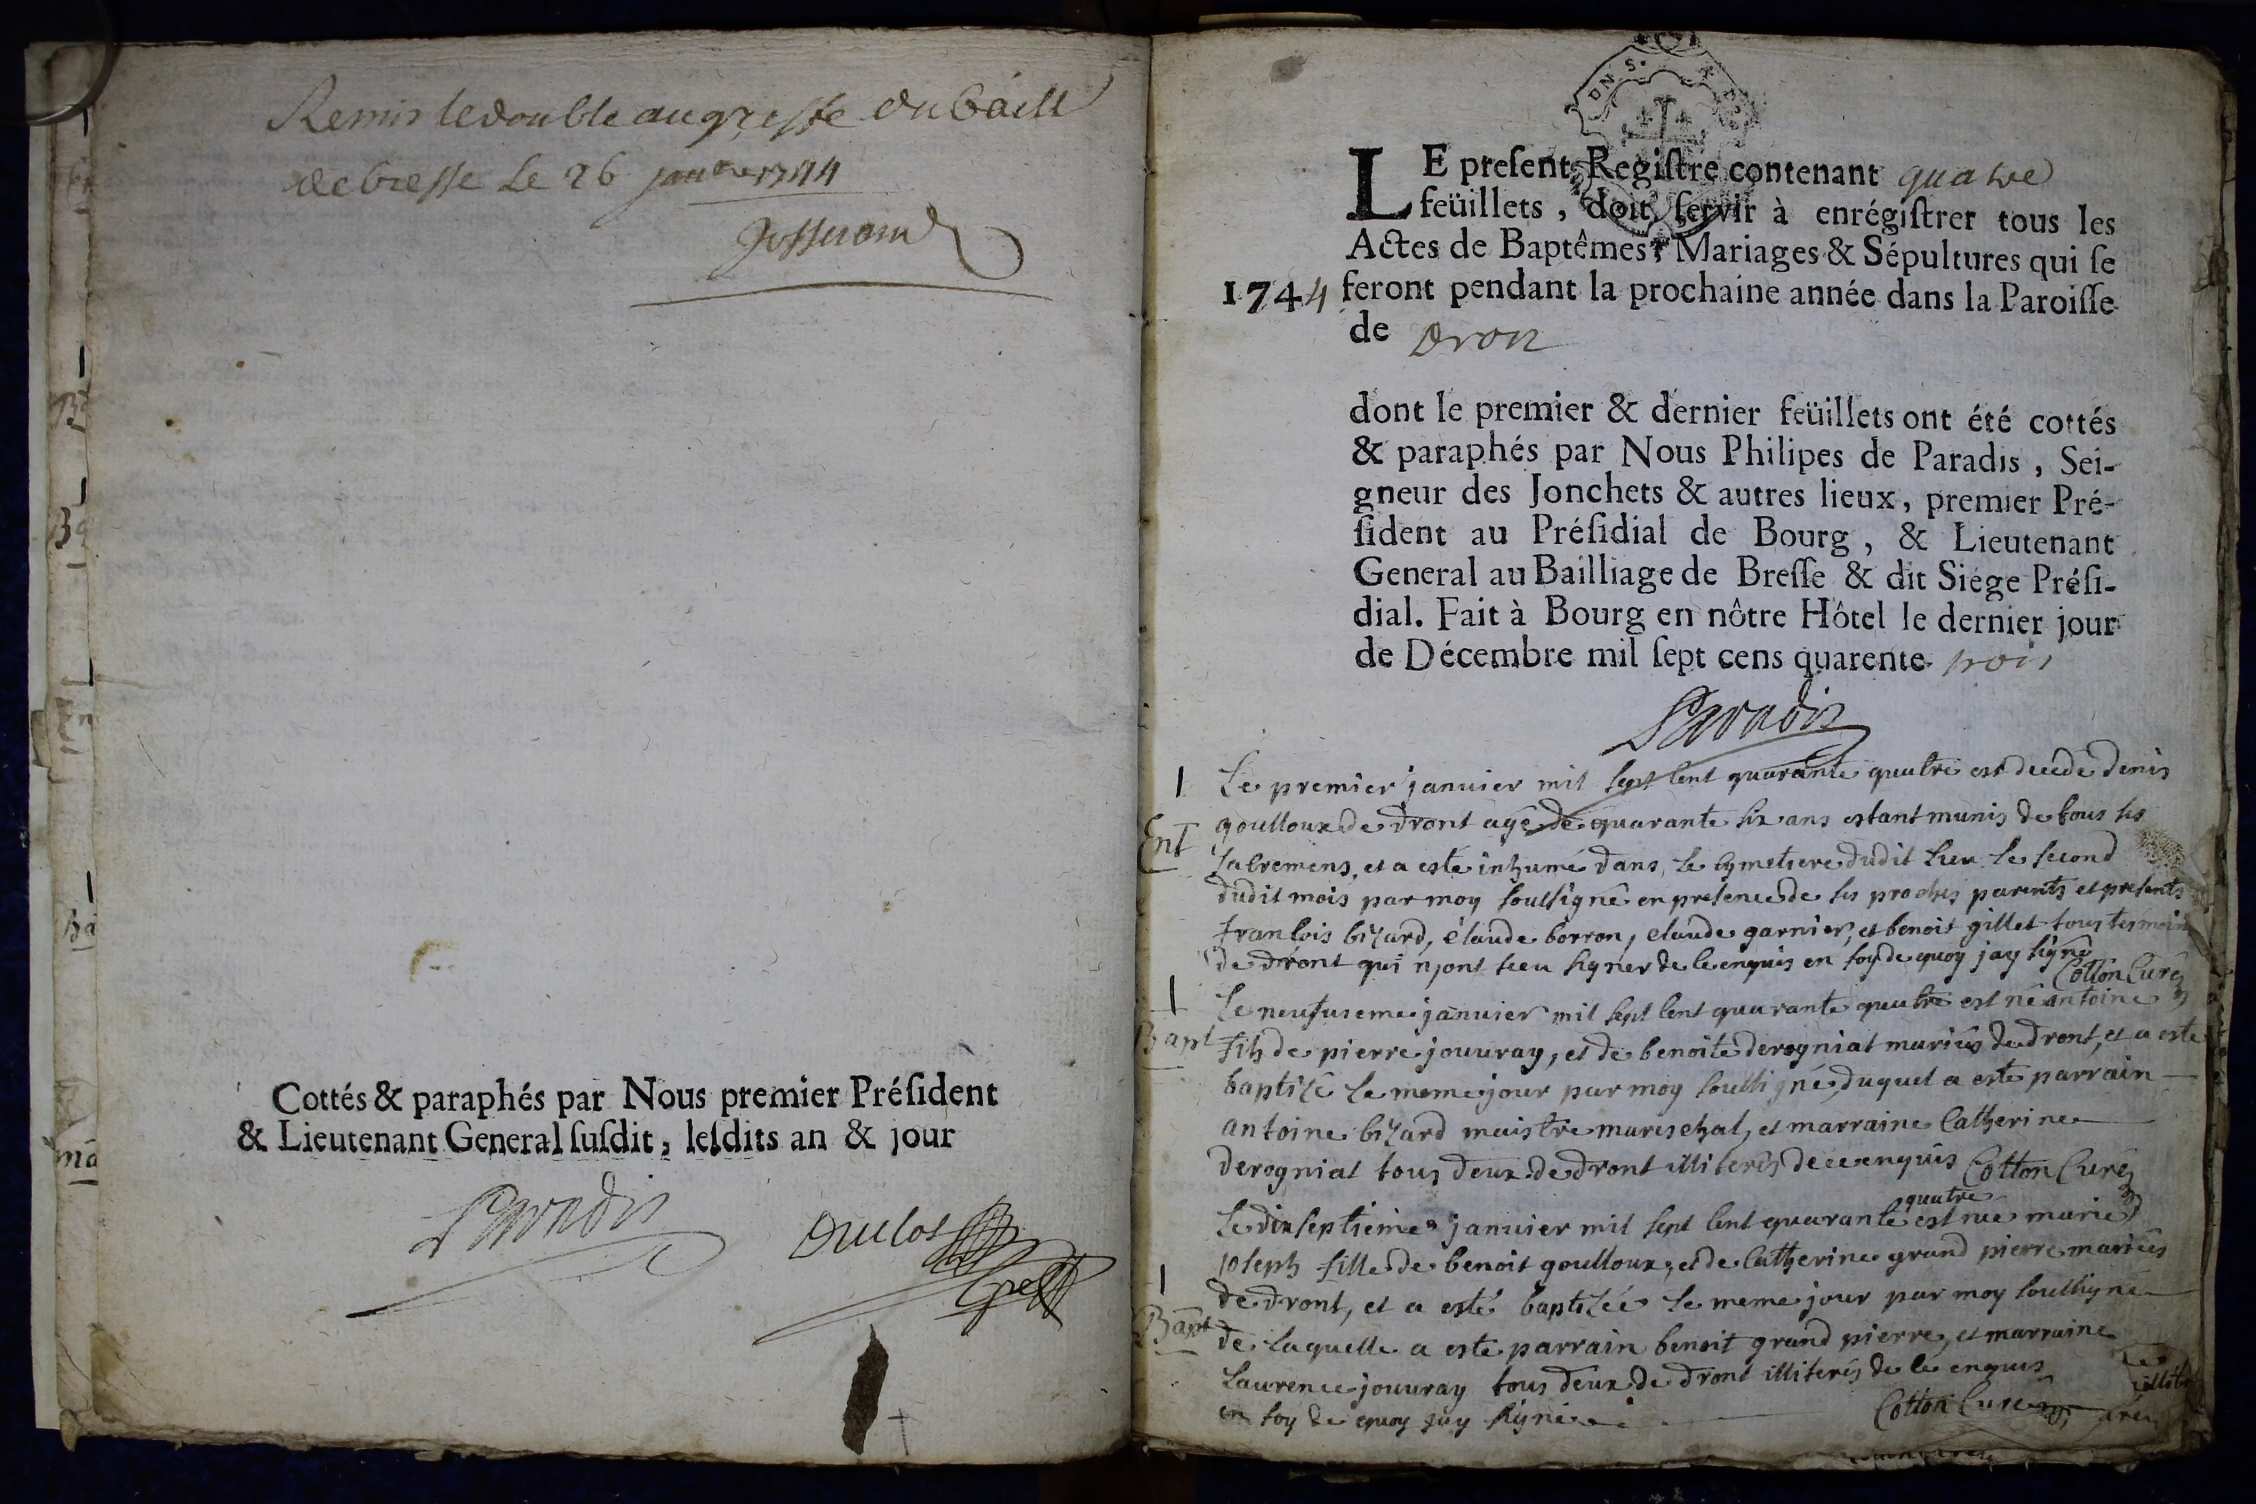 Remis le double au greffe du baill
de bresse Le 26 janvier 1744
Josserand
Cottés & paraphés par Nous premier Préſident
& Lieutenant General ſuſdit, leſdits an & jour
Paradis
Duclos
LE preſent Regiſtre contenant quatre
feüillets, doit ſervir à enrégiſtrer tous les
Actes de Baptêmes, Mariages & Sépultures qui ſe
1744 feront pendant la prochaine année dans la Paroiſſe
de Dron
dont le premier & dernier feüillets ont été cottés
& paraphés par Nous Philipes de Paradis, Sei-
gneur des Jonchets & autres lieux, premier Pré-
ſident au Préſidial de Bourg, & Lieutenant
General au Bailliage de Breſſe & dit Siége Préſi-
dial. Fait à Bourg en nôtre Hôtel le dernier jour
de Décembre mil ſept cens quarente trois
Paradis
1 Le premier janvier mil sept cent quarante quatre est decede denis
goulloux de dront agé de quarante six ans estant munis de tous ses
Ent sacremens, et a esté inhumé dans le cymetiere dudit lieu le second
dudit mois par moy soussigné en presence de ses proches parents et presents
françois bizard, claude borron, claude garnier, et benoit gillet tous tesmoins
de dront qui n'ont sceu signer de ce enquis en foy de quoy j'ay signé
Cotton Curé
1 Le neufvieme janvier mil sept cent quarante quatre est né antoine
Bapt fils de pierre jouvray, et de benoite derogniat mariés de dront, et a esté
baptizé le meme jour par moy soussigné, duquel a esté parrain
antoine bizard maistre mareschal, et marraine Catherine
derogniat tous deux de dront illiterés de ce enquis Cotton Curé
quatre
Le dix septieme janvier mil sept cent quarante est née marie
joseph fille de benoit goulloux, et de Catherine grand pierre mariés
1 de dront, et a esté baptizée le meme jour par moy soussigné
Bapt de laquelle a esté parrain benoit grand pierre, et marraine
Laurence jouvray tous deux de dront illiterés de ce enquis
en foy de quoy j'ay signé
Cotton Curé